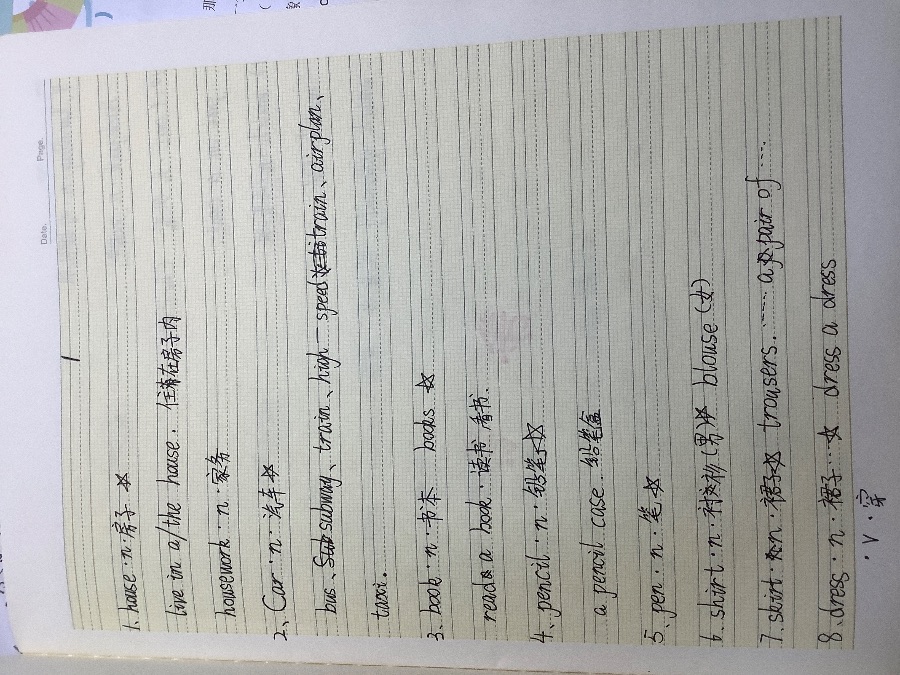 Date.
Page.
1
1、house·n·房子☆
live in a/the house. 住在房子内
housework·n·家务
2、Car·n·汽车☆
bus、subway、train、high-speed train、airplan、
taxi.
3、book·n·书本 books ☆
read a book·读书 看书.
4、pencil·n·铅笔☆
a pencil case 铅笔盒
5、pen·n·笔☆
6、shirt·n·衬衫(男)☆ blouse(女)
7、skirt·n·裙子☆ trousers. ······ a pair of ·····
8、dress·n·裙子··☆ dress a dress
·v·穿